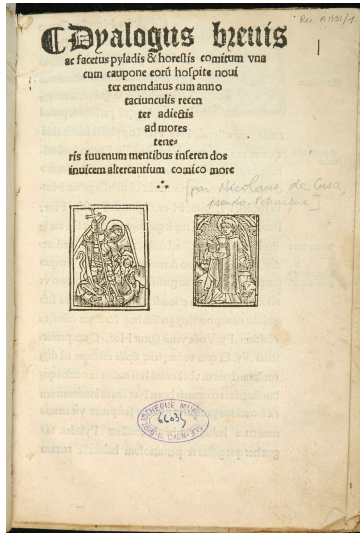 Res. A 1431/1
Dyalogus breuis
ac facetus pyladis & horestis comitum vna
cum caupone eorū hospite noui
ter emendatus cum anno
taciunculis recen
ter adiectis
ad mores
tene-
ris iuuenum mentibus inserendos
inuicem altercantium comico more
[par Nicolaus de Cusa,
pseudo-Pétrarque]
BIBLIOTHEQUE MUNICIPALE
DE CAEN